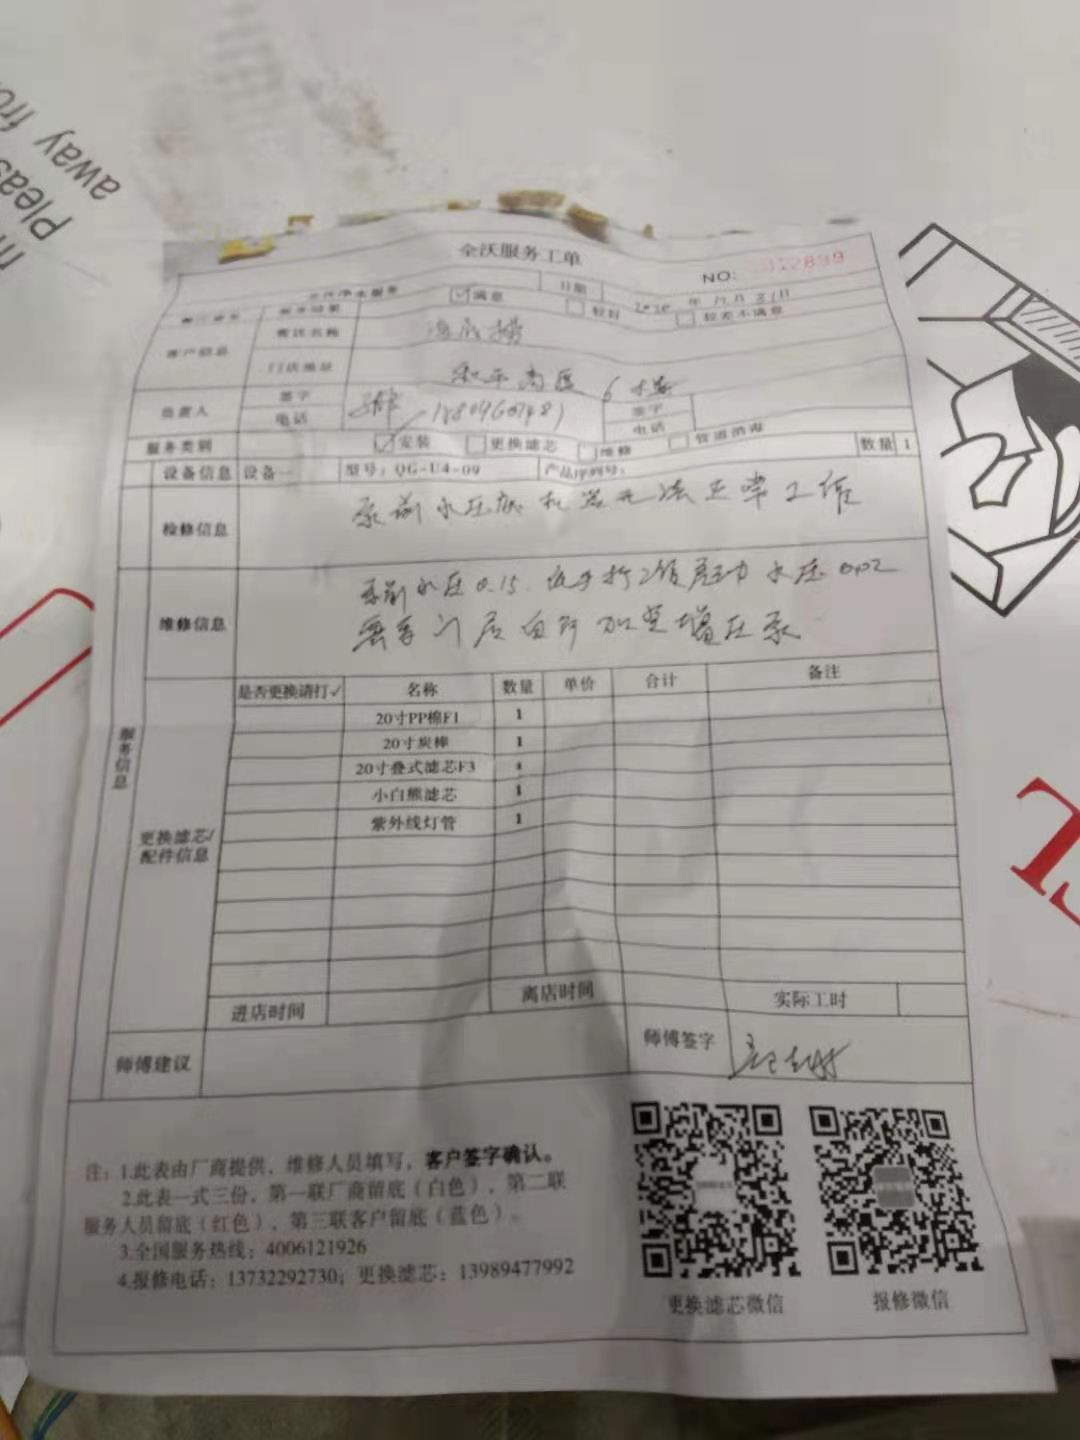 away fro
Pleas
全沃服务工单
NO: 2899
日期
年 月 31日
满意
较好
较差不满意
客户信息
餐饮名称
海底捞
门店地址
负责人
签字
电话
签字
电话
服务类别
安装
更换滤芯
维修
管道消毒
数量 1
设备信息 设备一 型号：QG-U4-09 产品序列号：
检修信息
泵前水压低 机器无法正常工作
维修信息
泵前水压0.15. 启动 水压0.02
需要门店自行加装增压泵
服务信息
是否更换请打✓ 名称 数量 单价 合计 备注
20寸PP棉F1 1
20寸炭棒 1
20寸叠式滤芯F3
小白熊滤芯 1
紫外线灯管 1
更换滤芯/
配件信息
进店时间 离店时间 实际工时
师傅建议
师傅签字
注：1.此表由厂商提供、维修人员填写，客户签字确认。
2.此表一式三份，第一联厂商留底（白色）、第二联
服务人员留底（红色）、第三联客户留底（蓝色）。
3.全国服务热线：4006121926
4.报修电话：13732292730；更换滤芯：13989477992
更换滤芯微信
报修微信